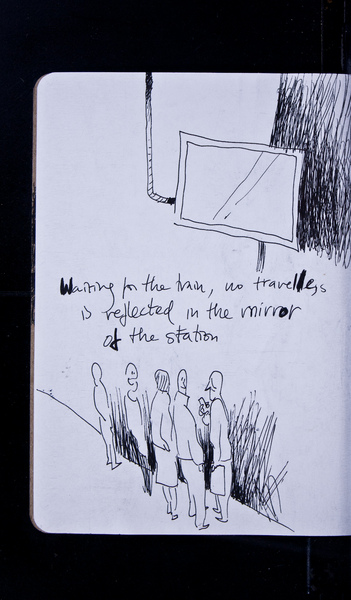 Waiting for the train, no travellers
is reflected in the mirror
of the station